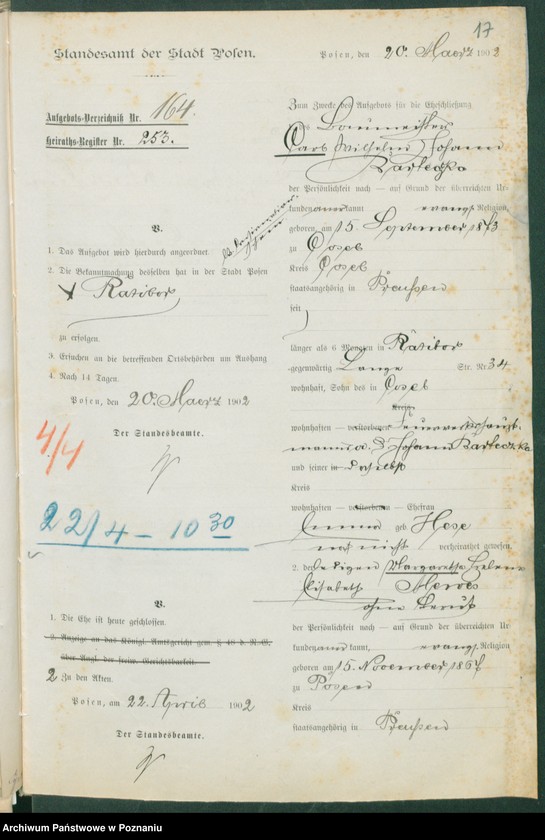 17
Standesamt der Stadt Posen.
Posen, den 20. Maerz 1902
Aufgebots-Verzeichniß Nr. 164.
Heiraths-Register Nr. 253.
V.
1. Das Aufgebot wird hierdurch angeordnet.
2. Die Bekanntmachung desselben hat in der Stadt Posen
Ratibor
zu erfolgen.
3. Ersuchen an die betreffenden Ortsbehörden um Aushang
4. Nach 14 Tagen.
Posen, den 20. Maerz 1902
Der Standesbeamte.
4/4
22/4 - 10 30
V.
1. Die Ehe ist heute geschlossen.
2. Anzeige an das Königl. Amtsgericht gem. § 48 d. R.G.
über Angl. der freiw. Gerichtsbarkeit
2 Zu den Akten.
Posen, am 22. April 1902
Der Standesbeamte.
Zum Zwecke des Aufgebots für die Eheschließung
Baumeisters
Carl Wilhelm Johann
der Persönlichkeit nach — auf Grund der überreichten Ur-
kunden anerkannt evang. Religion,
geboren am 15. September 1873
zu Cosel
Kreis Cosel
staatsangehörig in Preußen
seit
länger als 6 Monaten in Ratibor
gegenwärtig Lange Str. Nr 34
wohnhaft, Sohn des in Cosel
Kreis
wohnhaften — verstorbenen
Johann
und seiner in daselbst
Kreis
wohnhaften — verstorbenen — Ehefrau
geb. Hese
noch nicht verheirathet gewesen.
2. der ledigen Margarethe Helene
Elisabeth
ohne Beruf
der Persönlichkeit nach — auf Grund der überreichten Ur-
kunden kannt, evang. Religion
geboren am 15. November 1867
zu Posen
Kreis
staatsangehörig in Preußen
Archiwum Państwowe w Poznaniu